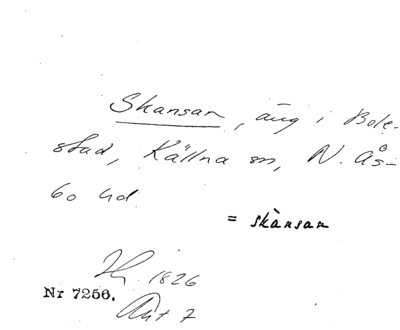 Skansar, äng i Bole-
stad, Källna sn, N. Ås-
bo hd.
= skànsar
1826
Nr 7256.
7